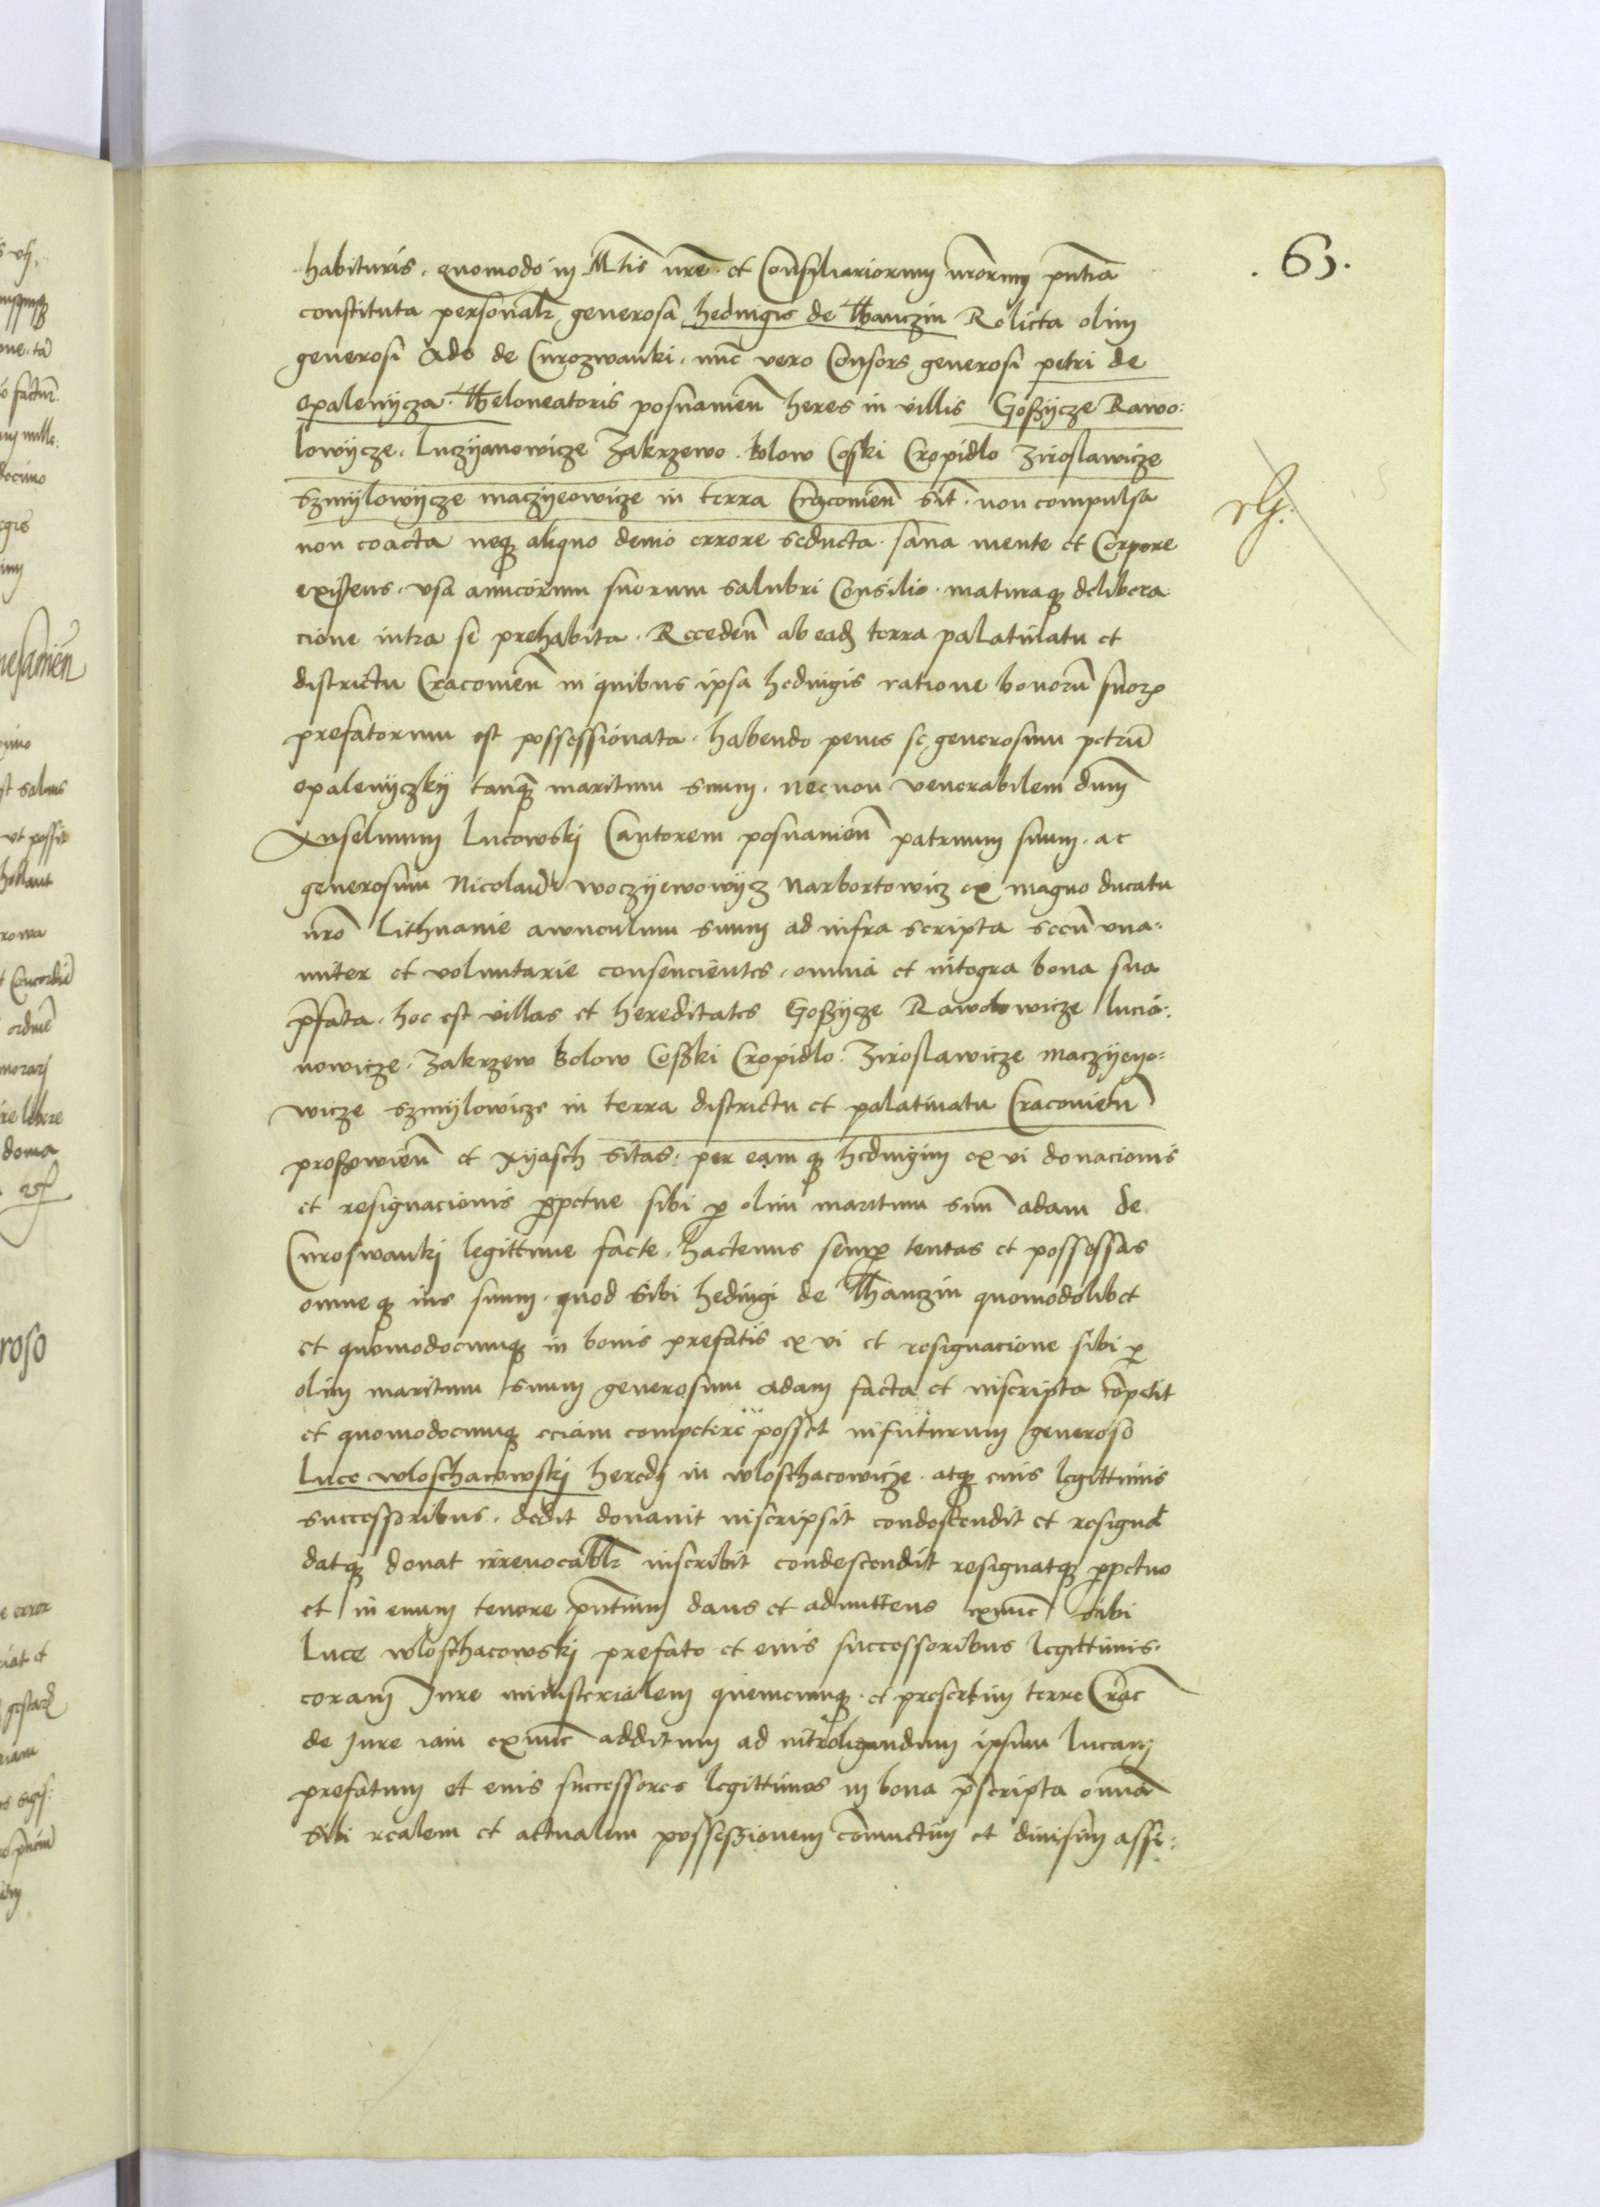 . 61.
habituris. quomodo in Mtis nre. et Consyliariorum nrorum pntia
constituta personalr generosa hedvigis de Thanczin Relicta olim
generosi Ade de Curozwanki. nunc vero Consors generosi petri de
opalenycza. Theloneatoris posnanien heres in villis Gossycze Rawo:
lowycze. Luczyanowicze Zakrzewo. kolow Coski Cropidlo Ziroslawicze
szmylowycze maczyeowicze in terra Cracovien sit. non compulsa
non coacta neq aliquo devio errore seducta. sana mente et Corpore
existens. usa amicorum suorum salubri Consilio. maturaq delibera
cione intra se prehabita. Receden ab ead terra palatinatu et
districtu Cracovien in quibus ipsa hedvigis ratione bonoru suor
prefatorum est possessionata. habendo penes se generosum petru
opalenyczky tanq maritum suum. necnon venerabilem dnm
Anselmum Lucowskj Cantorem posnanien patruum suum. ac
generosum Nicolau woczyewowycz Narbortowicz ex magno ducatu
nro Lithuanie avunculum suum ad infra scripta secu una:
niter et voluntarie consencientes. omnia et integra bona sua
pfata. hoc est villas et hereditates Gossycze Rawolowicze lucia:
nowicze. Zakrzew kolow Cosski Cropidlo. Ziroslawicze maczyeyo=
wicze szmylowicze in terra districtu et palatinatu Cracovien
prossowien et Xyasch sitas. per eam q hedvigim ex vi donacionis
et resignacionis ppetue sibi p olim maritum suu adam de
Curoswankj legittime facte. hactenus semp tentas et possessas
omne q ius suum. quod sibi hedvigi de Thanczin quomodolibet
et quomodocunq in bonis prefatis ex vi et resignacione sibi p
olim maritum suum generosum adam facta et inscripta copetit
et quomodocunq eciam competere posset infuturum generoso
Luce wloschacowskj heredj in wloschacowicze. atq eius legittimis
successoribus. dedit donavit inscripsit condescendit et resignat
datq donat irrevocablr inscribit condescendit resignatq ppetuo
et in evum tenore pntium dans et admittens exnunc sibi
Luce wloschacowskj prefato et eius successoribus legittimis.
coram Jure ministerialem quemcunq. et presertim terre Crac
de Jure iam exnunc additum ad introligandum ipsum lucam
prefatum et eius successores legittimos in bona pscripta omnia
sibi realem et actualem possessionem coniunctim et divisim assi: